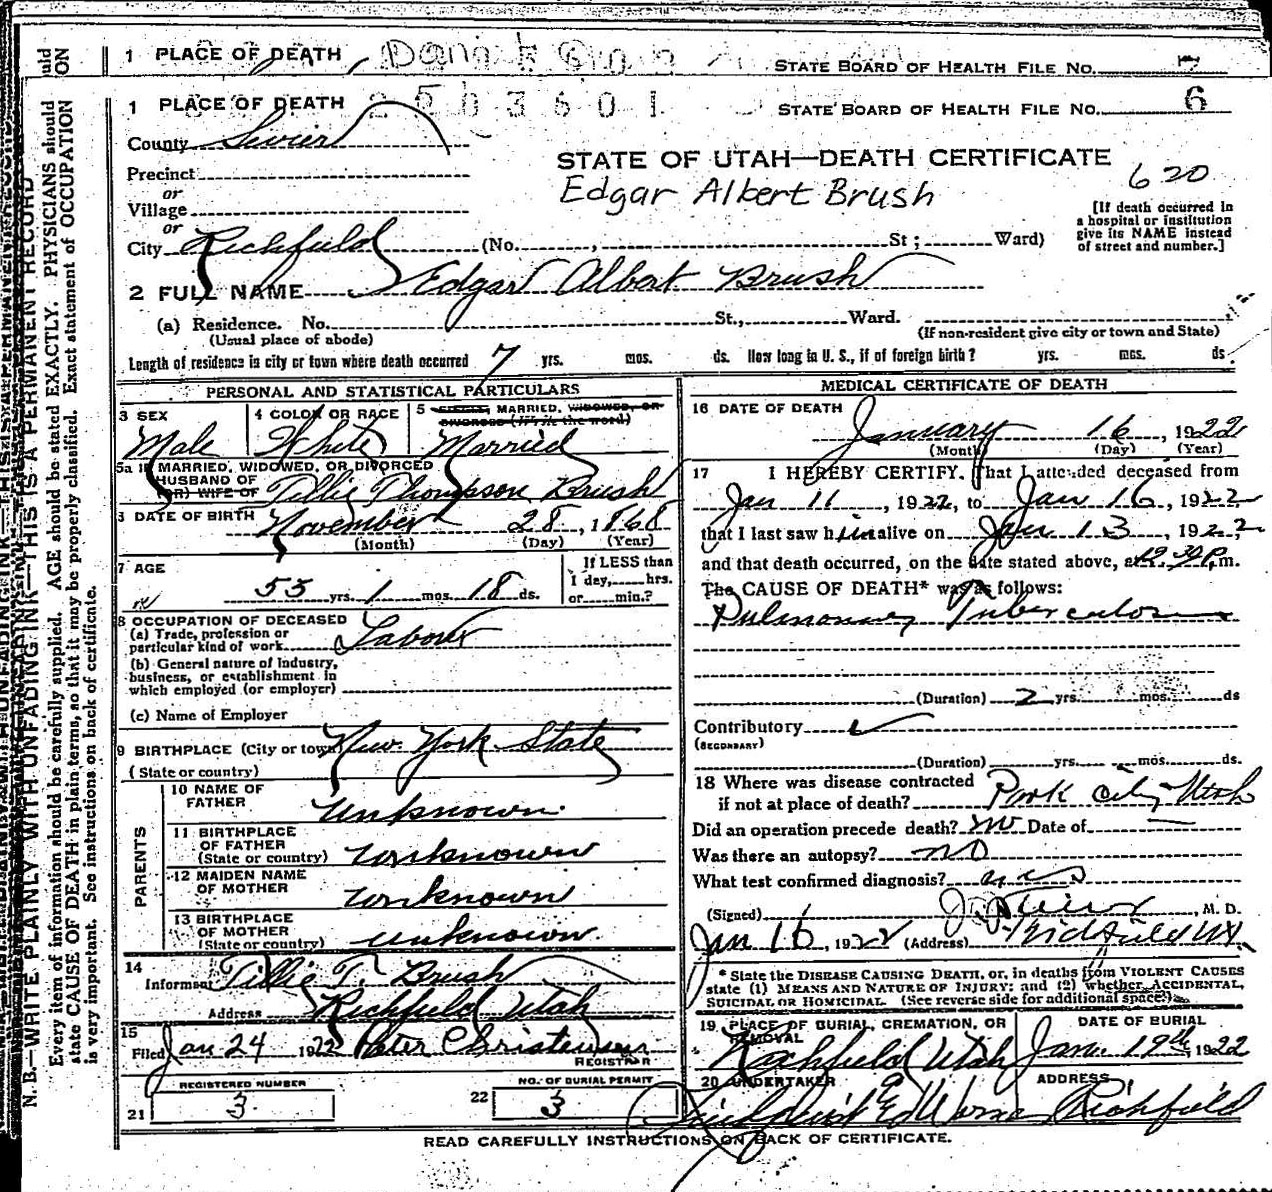 1 PLACE OF DEATH
STATE BOARD OF HEALTH FILE No. 7
1 PLACE OF DEATH 2503601
STATE BOARD OF HEALTH FILE No. 6
County Sevier
STATE OF UTAH—DEATH CERTIFICATE
620
Precinct
Edgar Albert Brush
or
Village
or
City Richfield (No. , St; Ward)
[If death occurred in
a hospital or institution
give its NAME instead
of street and number.]
2 FULL NAME Edgar Albert Brush
(a) Residence. No. St., Ward.
(Usual place of abode)
(If non-resident give city or town and State)
Length of residence in city or town where death occurred 7 yrs. mos. ds. How long in U. S., if of foreign birth? yrs. mos. ds.
PERSONAL AND STATISTICAL PARTICULARS
3 SEX
Male
4 COLOR OR RACE
White
5 SINGLE, MARRIED, WIDOWED, OR
DIVORCED (Write the word)
Married
5a IF MARRIED, WIDOWED, OR DIVORCED
HUSBAND OF
(OR) WIFE OF Tillie Thompson Brush
6 DATE OF BIRTH November 28, 1868
(Month) (Day) (Year)
7 AGE
53 yrs. 1 mos. 18 ds.
If LESS than
1 day, hrs.
or min.?
8 OCCUPATION OF DECEASED
(a) Trade, profession or
particular kind of work Laborer
(b) General nature of Industry,
business, or establishment in
which employed (or employer)
(c) Name of Employer
9 BIRTHPLACE (City or town) New York State
(State or country)
PARENTS
10 NAME OF
FATHER unknown
11 BIRTHPLACE
OF FATHER
(State or country) unknown
12 MAIDEN NAME
OF MOTHER unknown
13 BIRTHPLACE
OF MOTHER
(State or country) unknown.
14
Informant Tillie T. Brush
Address Richfield Utah
15
Filed Jan 24 1922 Peter Christensen
REGISTRAR
REGISTERED NUMBER
21 3
NO. OF BURIAL PERMIT
22 3
MEDICAL CERTIFICATE OF DEATH
16 DATE OF DEATH
January 16, 1922
(Month) (Day) (Year)
17 I HEREBY CERTIFY, That I attended deceased from
Jan 11, 1922, to Jan 16, 1922,
that I last saw him alive on Jan 13, 1922,
and that death occurred, on the date stated above, at 12.30 P.m.
The CAUSE OF DEATH* was as follows:
Pulmonary Tuberculosis
(Duration) 2 yrs. mos. ds
Contributory
(SECONDARY)
(Duration) yrs. mos. ds.
18 Where was disease contracted
if not at place of death? Park City Utah
Did an operation precede death? no Date of —
Was there an autopsy? no
What test confirmed diagnosis?
(Signed) , M. D.
Jan 16, 1922 (Address) Richfield Ut.
* State the DISEASE CAUSING DEATH, or, in deaths from VIOLENT CAUSES
state (1) MEANS AND NATURE OF INJURY; and (2) whether ACCIDENTAL,
SUICIDAL OR HOMICIDAL. (See reverse side for additional space.)
19 PLACE OF BURIAL, CREMATION, OR
REMOVAL
Richfield Utah
DATE OF BURIAL
Jan. 19th, 1922
20 UNDERTAKER
ADDRESS
Richfield
READ CAREFULLY INSTRUCTIONS ON BACK OF CERTIFICATE.
N. B.—WRITE PLAINLY WITH UNFADING INK—THIS IS A PERMANENT RECORD
Every item of information should be carefully supplied. AGE should be stated EXACTLY. PHYSICIANS should
state CAUSE OF DEATH in plain terms, so that it may be properly classified. Exact statement of OCCUPATION
is very important. See instructions on back of certificate.